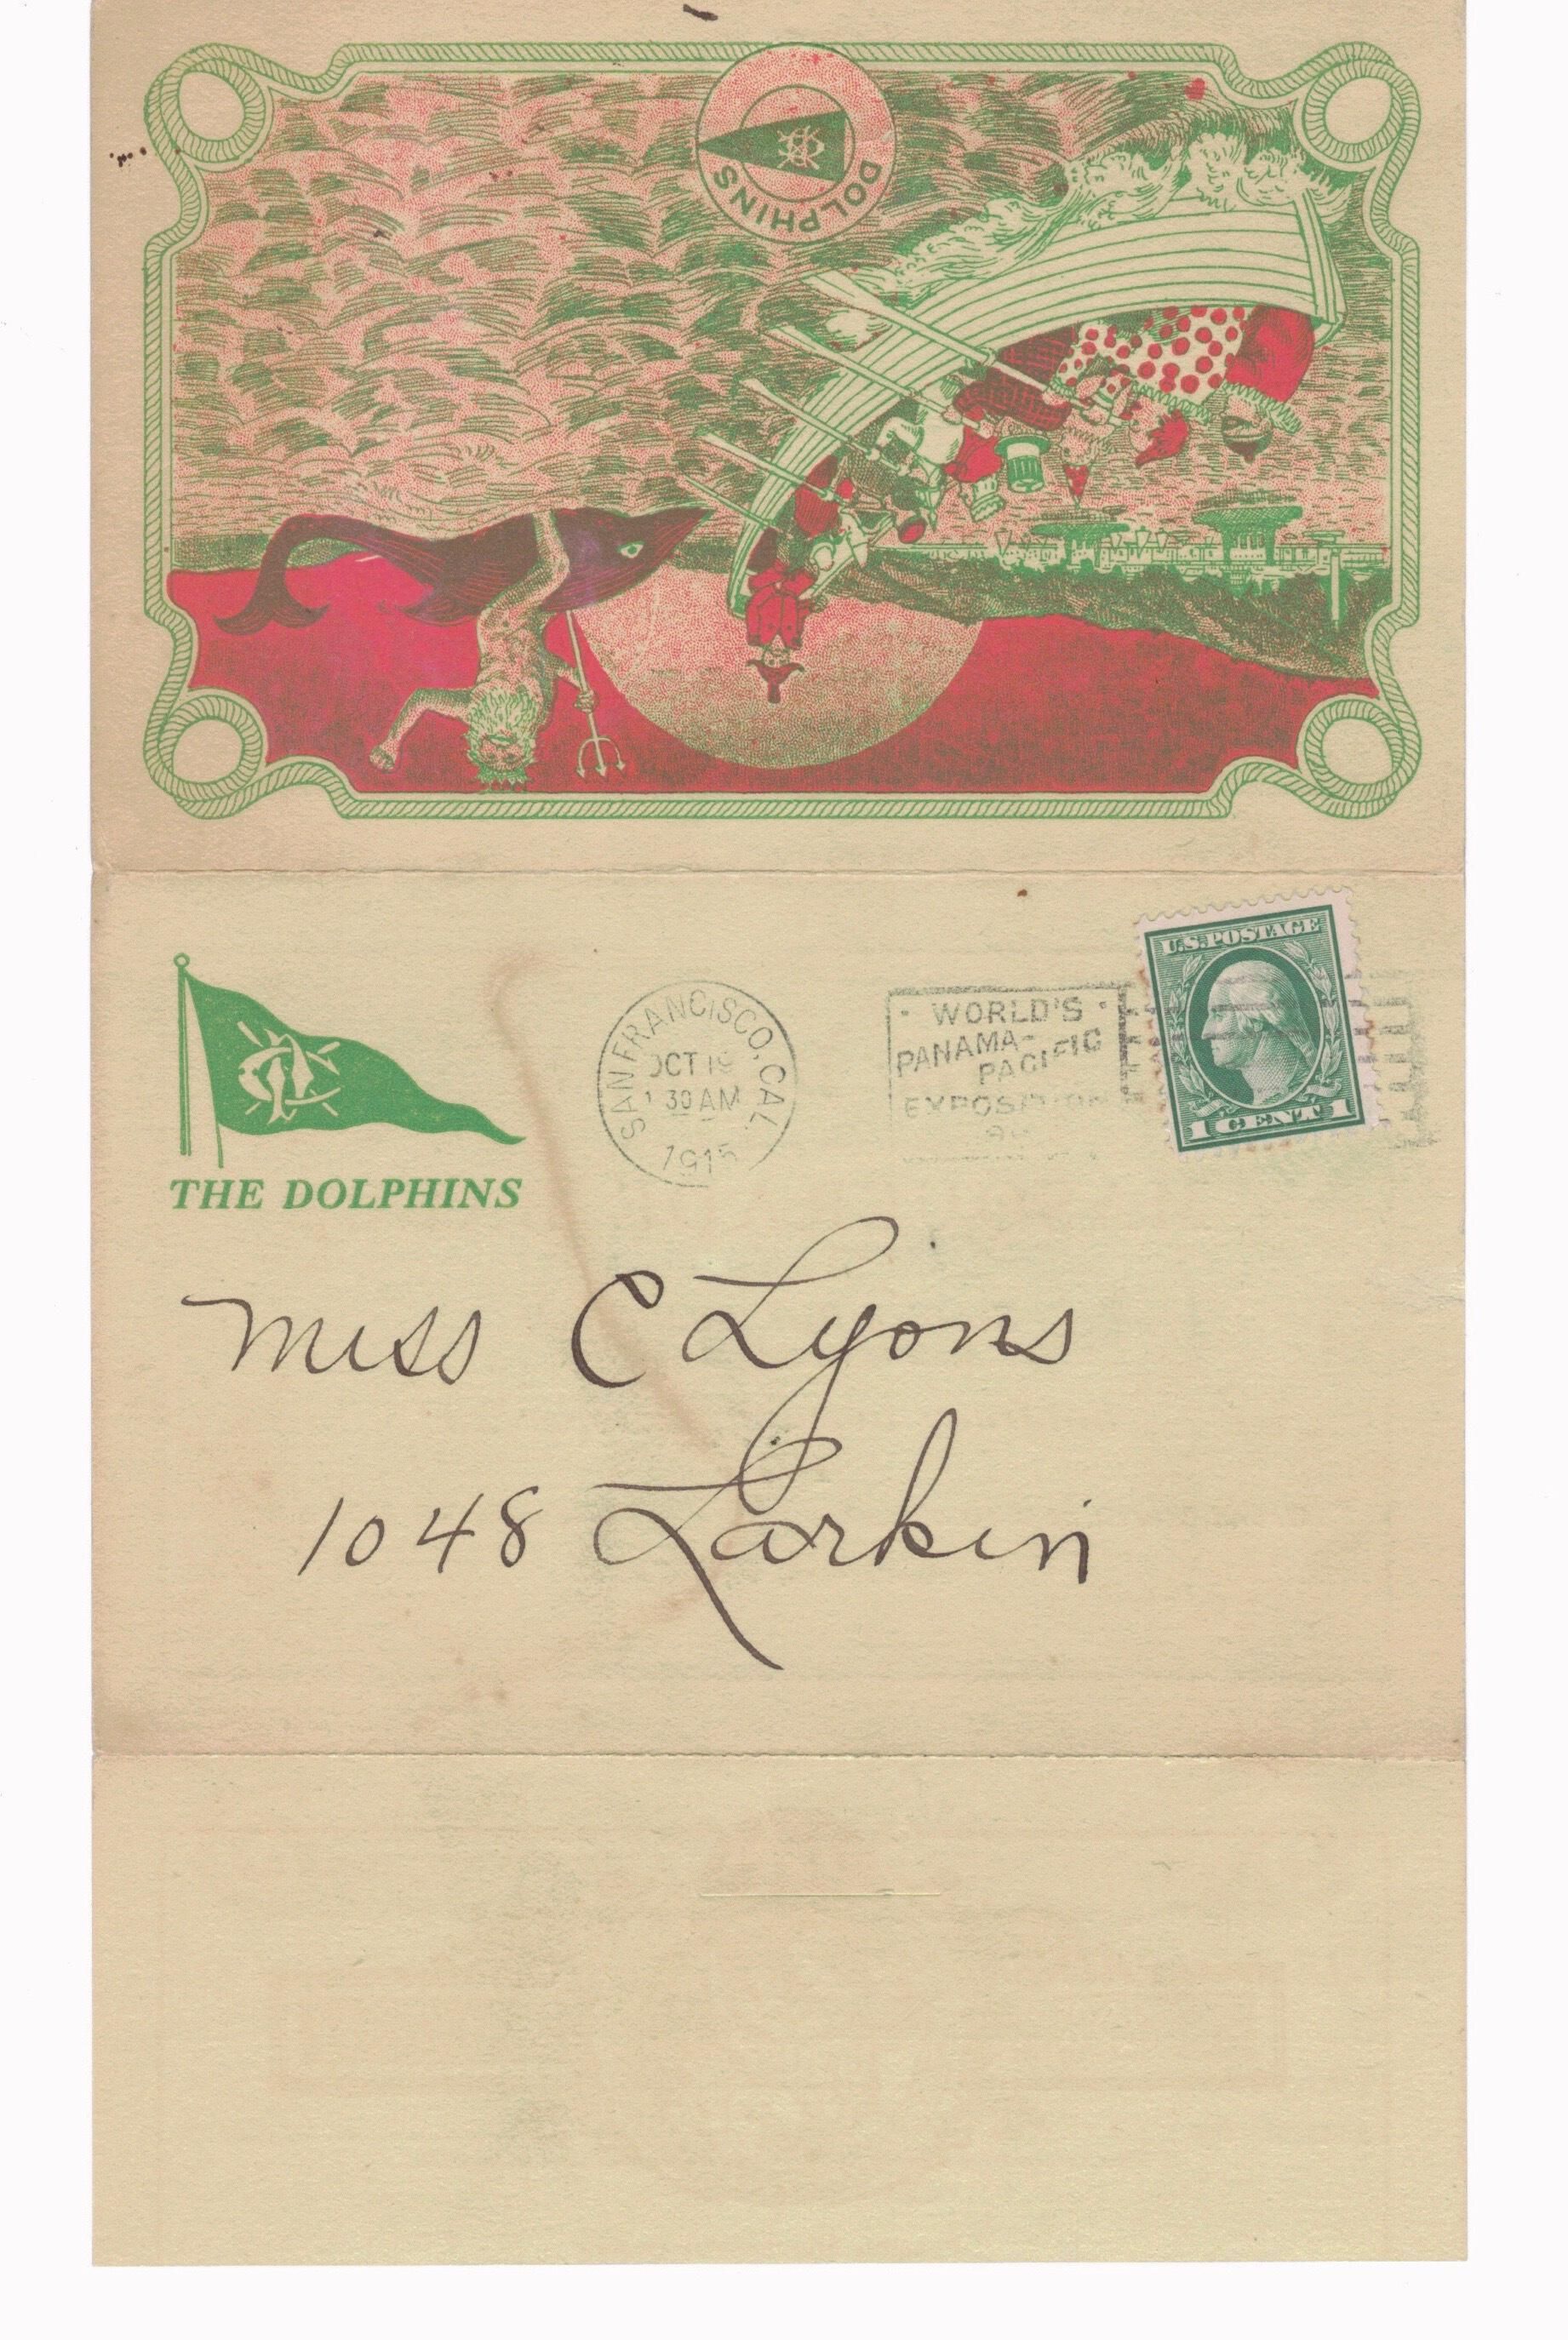 DOLPHINS
SAN FRANCISCO, CAL.
OCT 19
30 AM
1915
WORLD'S
PANAMA-
PACIFIC
EXPOSITION
U.S. POSTAGE
1 CENT 1
THE DOLPHINS
Miss C Lyons
1048 Larkin